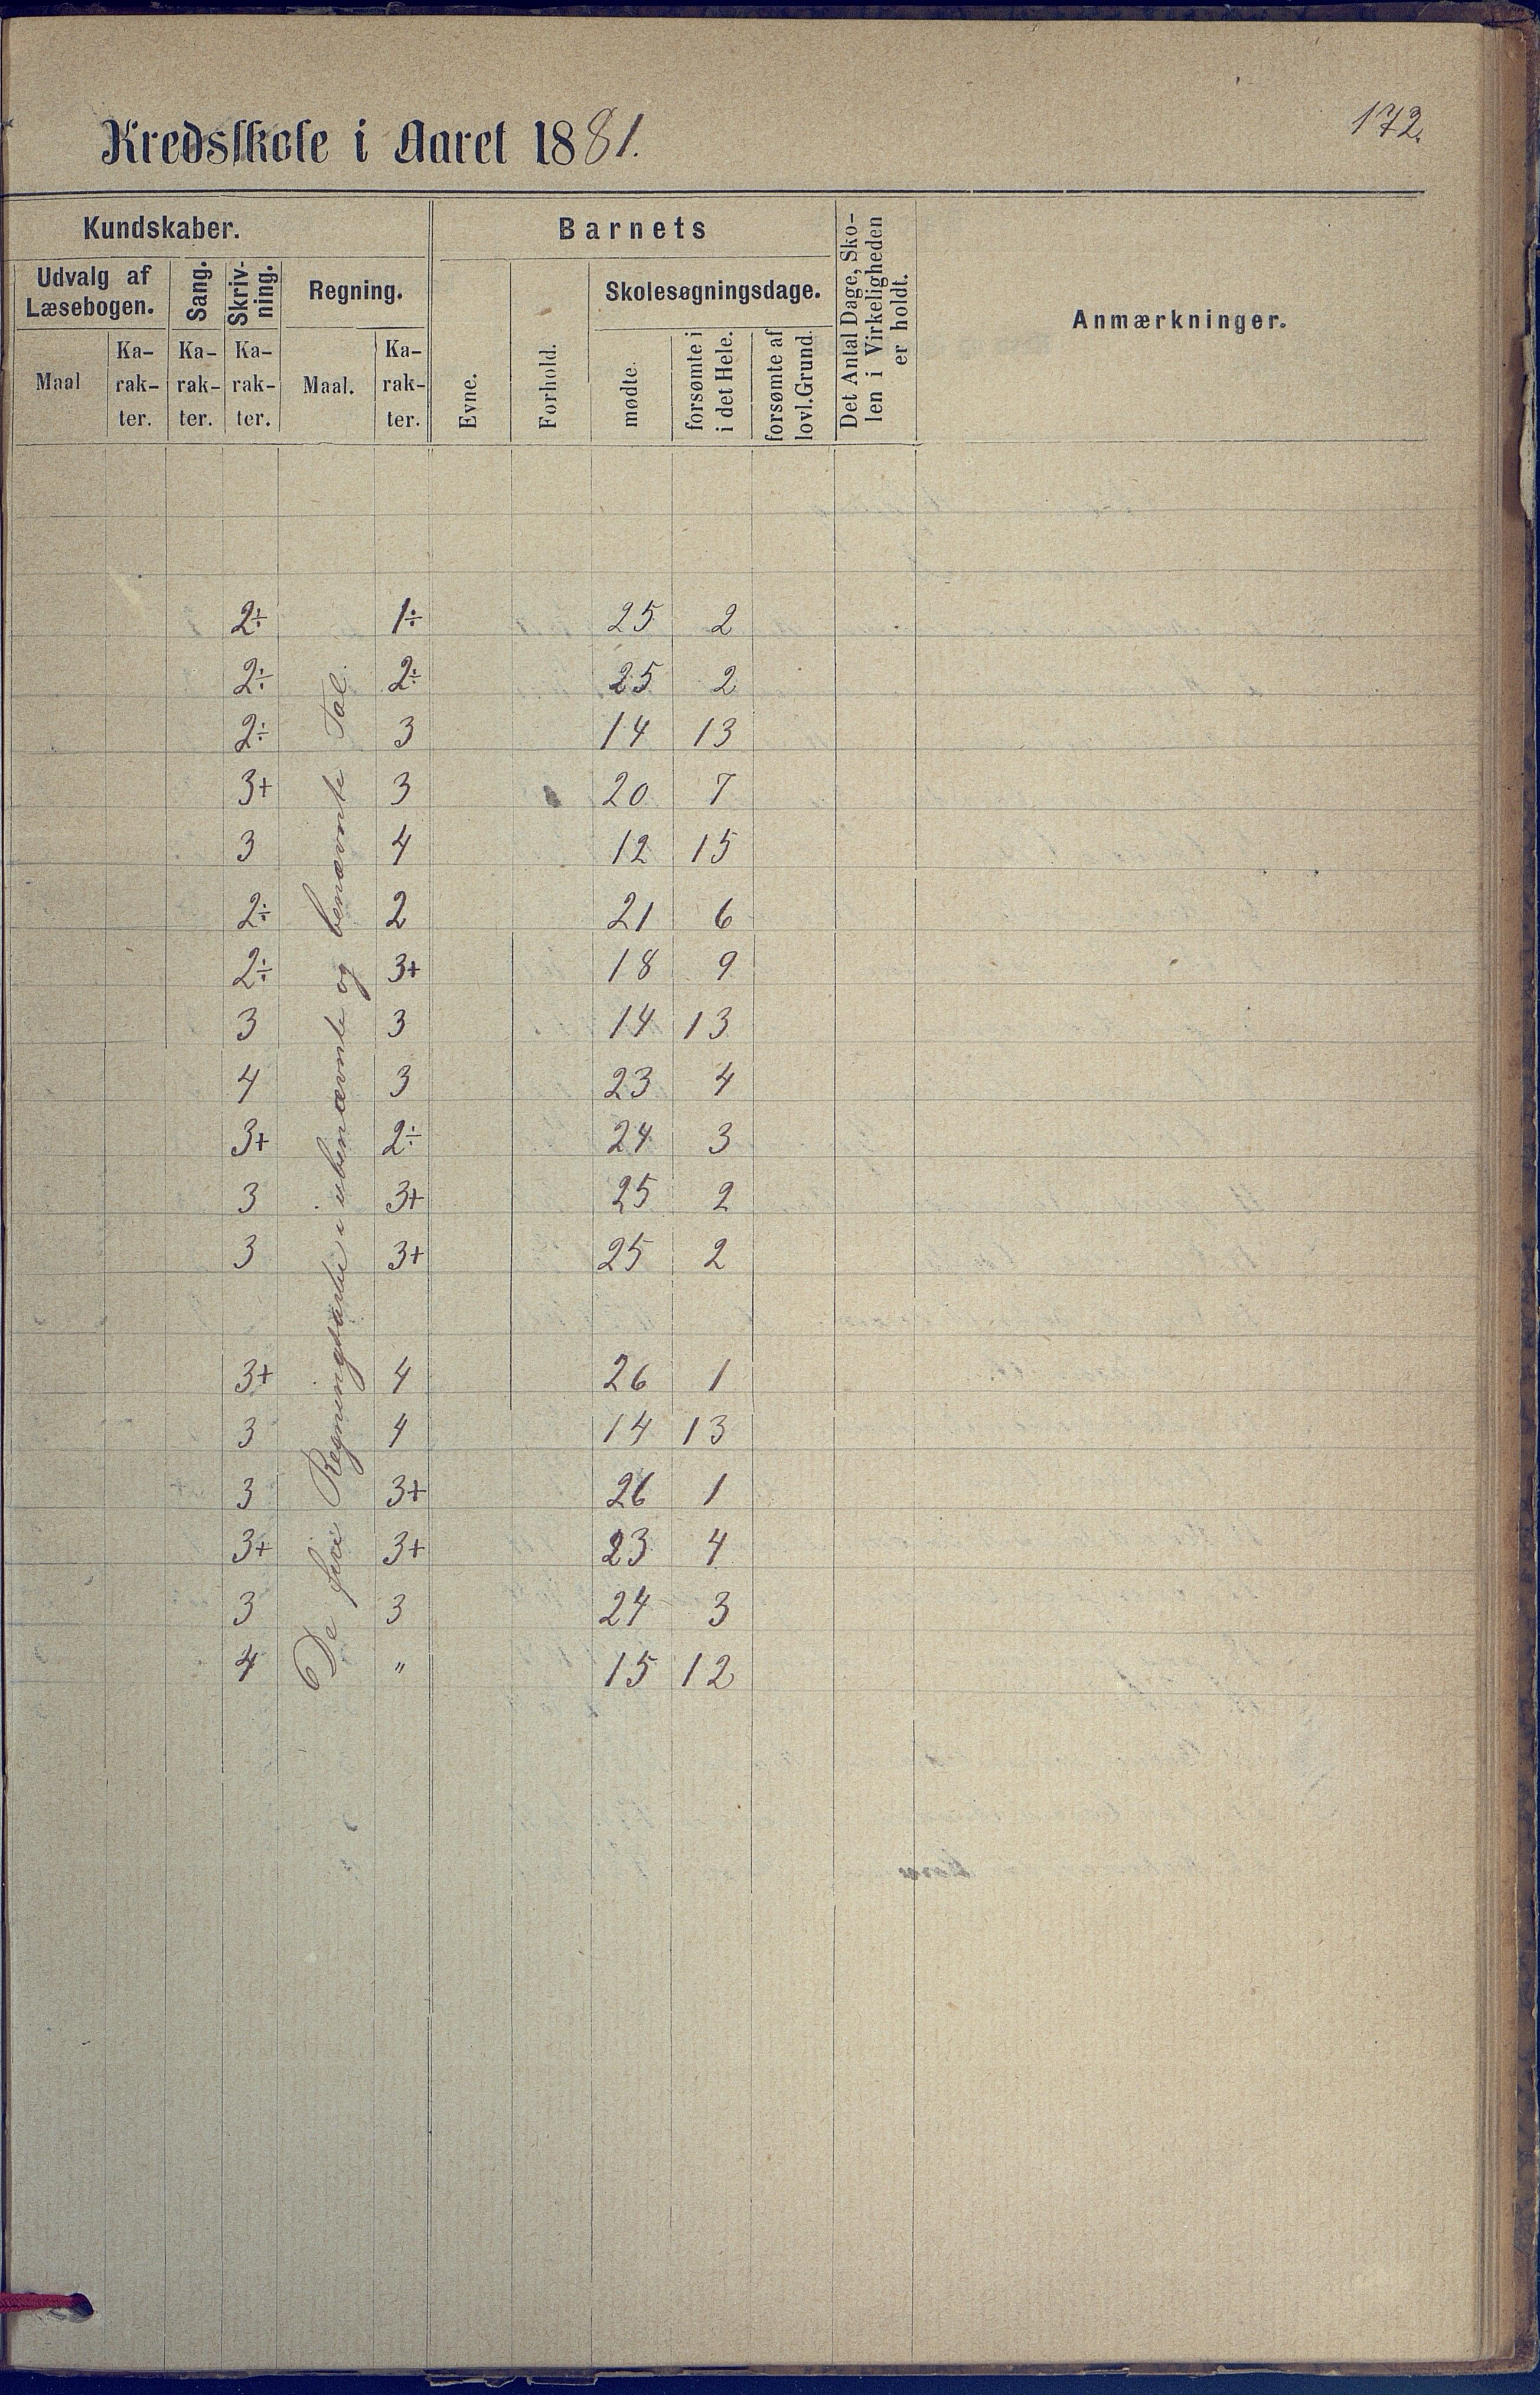 172.
Kredsskole i Aaret 1881.
Kundskaber.
Barnets
Det Antal Dage, Sko-
len i Virkeligheden
er holdt.
Anmærkninger.
Udvalg af
Læsebogen.
Sang.
Skriv-
ning.
Regning.
Evne.
Forhold.
Skolesøgningsdage.
Maal
Ka-
rak-
ter.
Ka-
rak-
ter.
Ka-
rak-
ter.
Maal.
Ka-
rak-
ter.
mødte.
forsømte i
i det Hele.
forsømte af
lovl.Grund.
De fire Regningsarter i ubenævnte og benævnte Tal.
2÷ 1÷ 25 2
2÷ 2÷ 25 2
2÷ 3 14 13
3+ 3 20 7
3 4 12 15
2÷ 2 21 6
2÷ 3+ 18 9
3 3 14 13
4 3 23 4
3+ 2÷ 24 3
3 3+ 25 2
3 3+ 25 2
3+ 4 26 1
3 4 14 13
3 3+ 26 1
3+ 3+ 23 4
3 3 24 3
4 " 15 12